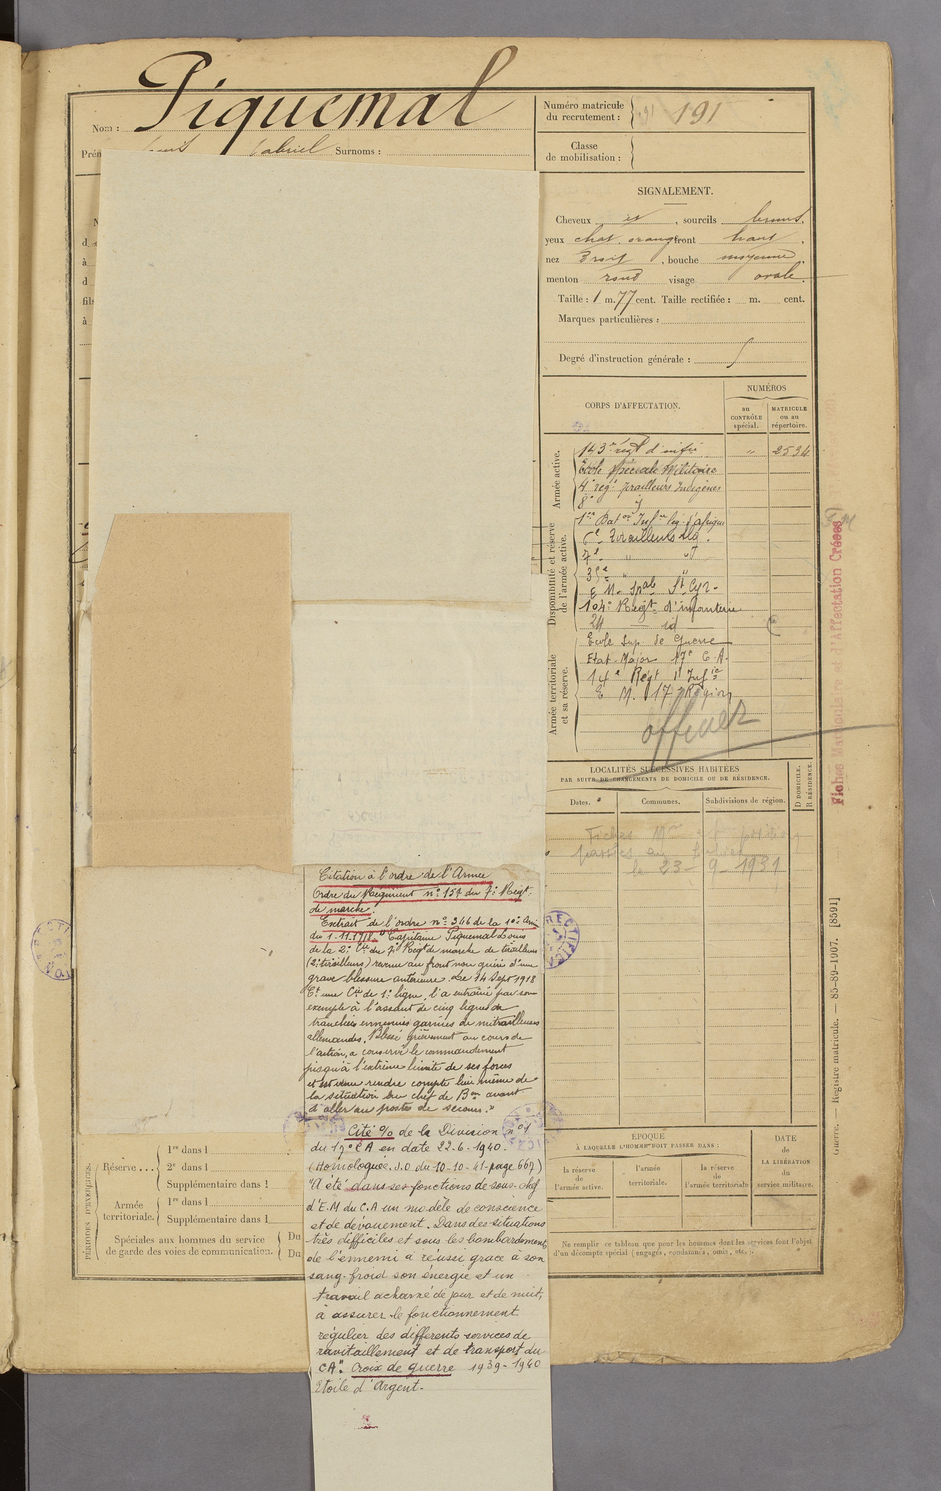 Nom : Piquemal
Prén Gabriel Surnoms :
Numéro matricule
du recrutement : 191
Classe
de mobilisation :
SIGNALEMENT.
Cheveux et , sourcils bruns.
yeux chat. orang front haut ,
nez Droit , bouche moyenne.
menton rond visage ovale
Taille : 1 m. 77 cent. Taille rectifiée : m. cent.
Marques particulières :
Degré d'instruction générale :
CORPS D'AFFECTATION.
NUMÉROS
au
CONTRÔLE
spécial.
MATRICULE
ou au
répertoire.
Armée active.
Disponibilité et réserve
de l'armée active.
Armée territoriale
et sa réserve.
143e régt d'infie " 2534
École spéciale Militaire
4e régt tirailleurs Indigènes
8e id
1er Baton Infie leg. d'afrique
6e Tirailleurs Alg.
7e " "
35e " "
E M. Spale St Cyr-
104e Régt d'infanterie
24 — id —
Ecole Sup. de Guerre
Etat-Major 17e C A-
14e Régt d'Infie
E M. 17e Région
officier
LOCALITÉS SUCCESSIVES HABITÉES
PAR SUITE DE CHANGEMENTS DE DOMICILE OU DE RÉSIDENCE.
Dates.
Communes.
Subdivisions de région.
D DOMICILE.
R RÉSIDENCE.
Fiches
le 23-9-1931
Fiches Matriculaire et d'Affectation Créées
Citation à l'ordre de l'Armée
Ordre du Régiment n° 157 du 7e Régt
de marche.
Extrait de l'ordre n° 346 de la 10e Armée
du 1-11.1918. "Capitaine Piquemal Louis
de la 2e Cie du 7e Régt de marche de tirailleurs
(2e tirailleurs) revenu au front non guéri d'une
grave blessure antérieure. Le 14 Sept 1918
Ct une Cie de 1e ligne, l'a entraîné par son
exemple à l'assaut de cinq lignes de
tranchées ennemies garnies de mitrailleuses
allemandes. Blessé grièvement au cours de
l'action, a conservé le commandement
jusqu'à l'extrême limite de ses forces
et est venu rendre compte lui même de
la situation au chef de Bon avant
d'aller au poste de secours."
Cité % de la Division n° 1
du 17e CA en date 22-6-1940.
(Homologuée. J.O du 10-10-41-page 667)
"A été dans ses fonctions de sous-chef
d'E.M du C.A un modèle de conscience
et de dévouement. Dans des situations
très difficiles et sous les bombardements
de l'ennemi a réussi grace à son
sang-froid son énergie et un
travail acharné de jour et de nuit,
à assurer le fonctionnement
régulier des différents services de
ravitaillement et de transport du
CA". Croix de guerre 1939-1940
Etoile d'Argent.
PÉRIODES D'EXERCICES.
Réserve . . .
1re dans l
2e dans l
Supplémentaire dans l
Armée
territoriale.
1re dans l
Supplémentaire dans l
Spéciales aux hommes du service
de garde des voies de communication.
Du
Du
ÉPOQUE
À LAQUELLE L'HOMME DOIT PASSER DANS :
la réserve
de
l'armée active.
l'armée
territoriale.
la réserve
de
l'armée territoriale
DATE
de
LA LIBÉRATION
du
service militaire.
Ne remplir ce tableau que pour les hommes dont les services font l'objet
d'un décompte spécial (engagés, condamnés, omis, etc.).
Guerre. — Registre matricule. — 85-89-1907. [8591]